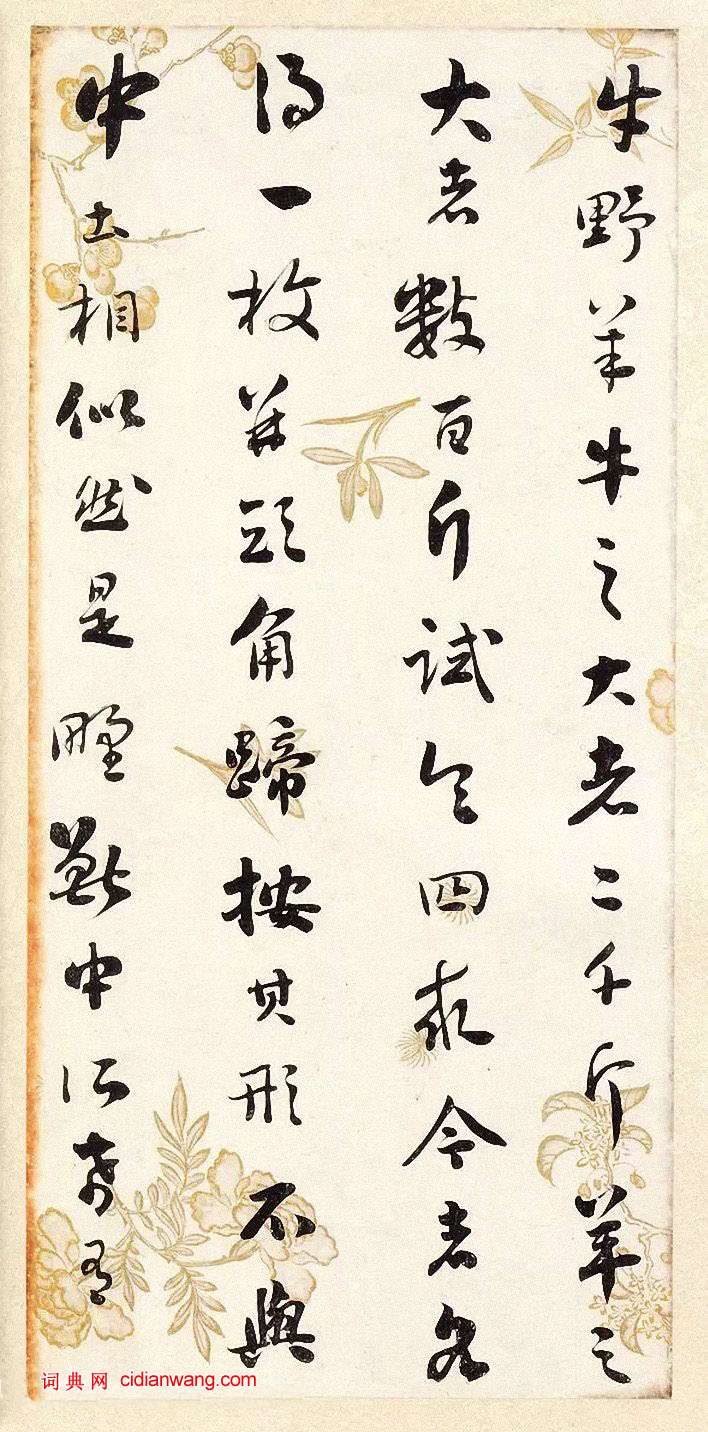 牛野羊牛之大者二千斤羊之
大者數百斤試令四求今者各
得一枚并頭角蹄按其形不與
中土相似然是野獸中所希有
词典网 cidianwang.com